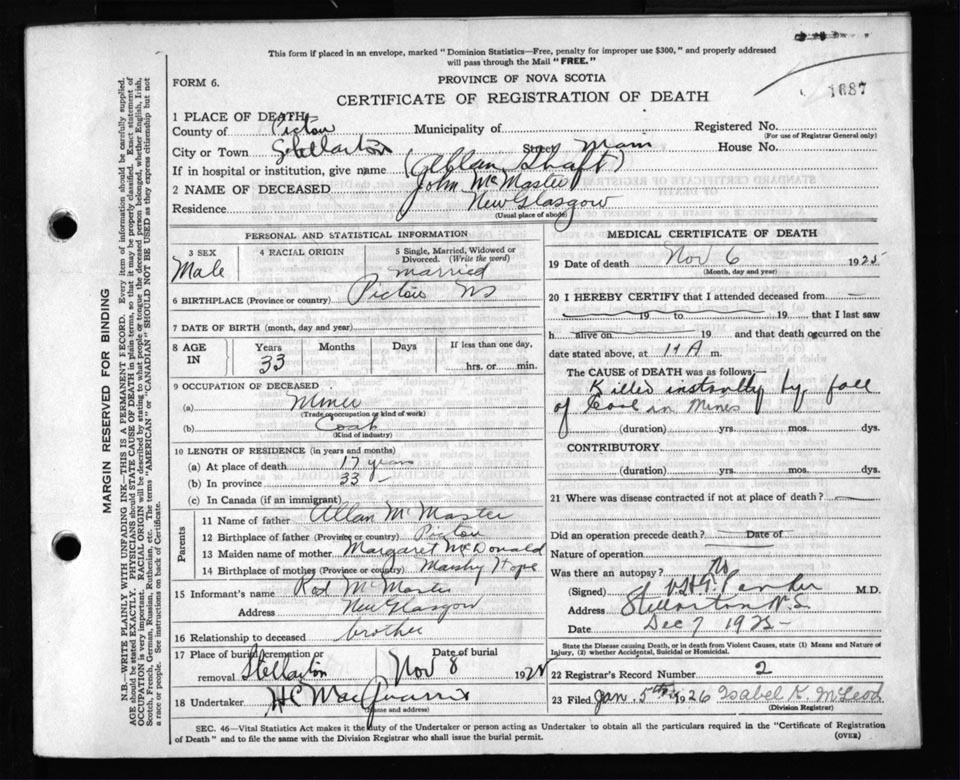 This form if placed in an envelope, marked "Dominion Statistics—Free, penalty for improper use $300," and properly addressed
will pass through the Mail "FREE."
FORM 6.
PROVINCE OF NOVA SCOTIA
1687
CERTIFICATE OF REGISTRATION OF DEATH
1 PLACE OF DEATH
County of Pictou Municipality of Registered No.
(For use of Registrar General only)
City or Town Stellarton Street Main House No.
If in hospital or institution, give name (Allan Shaft)
2 NAME OF DECEASED John McMaster
Residence New Glasgow
(Usual place of abode)
PERSONAL AND STATISTICAL INFORMATION
3 SEX
Male
4 RACIAL ORIGIN
5 Single, Married, Widowed or
Divorced. (Write the word)
married
6 BIRTHPLACE (Province or country) Pictou NS
7 DATE OF BIRTH (month, day and year)
8 AGE IN Years Months Days If less than one day,
33 hrs. or min.
9 OCCUPATION OF DECEASED
(a) Miner
(Trade occupation or kind of work)
(b) Coal
(Kind of industry)
10 LENGTH OF RESIDENCE (in years and months)
(a) At place of death 17 years
(b) In province 33 —
(c) In Canada (if an immigrant)
Parents
11 Name of father Allan McMaster
12 Birthplace of father (Province or country) Pictou
13 Maiden name of mother Margaret McDonald
14 Birthplace of mother (Province or country) Marshy Hope
15 Informant's name Rod McMaster
Address New Glasgow
16 Relationship to deceased brother
17 Place of burial, cremation or Date of burial
removal Stellarton Nov 8 192
18 Undertaker HC MacQuarrie
(Name and address)
MEDICAL CERTIFICATE OF DEATH
19 Date of death Nov 6 1925
(Month, day and year)
20 I HEREBY CERTIFY that I attended deceased from —
19 to 19 that I last saw
h alive on 19 and that death occurred on the
date stated above, at 11 A m.
The CAUSE OF DEATH was as follows:—
Killed instantly by fall
of Coal in Mines
(duration) yrs. mos. dys.
CONTRIBUTORY
(duration) yrs. mos. dys.
21 Where was disease contracted if not at place of death? —
Did an operation precede death? — Date of —
Nature of operation
Was there an autopsy? No
(Signed) M.D.
Address Stellarton N.S.
Date Dec 7 1925
State the Disease causing Death, or in death from Violent Causes, state (1) Means and Nature of
Injury, (2) whether Accidental, Suicidal or Homicidal.
22 Registrar's Record Number 2
23 Filed Jan. 5th 1926 Isabel K. McLeod
(Division Registrar)
SEC. 46—Vital Statistics Act makes it the duty of the Undertaker or person acting as Undertaker to obtain all the particulars required in the "Certificate of Registration
of Death" and to file the same with the Division Registrar who shall issue the burial permit.
(OVER)
MARGIN RESERVED FOR BINDING
N.B.—WRITE PLAINLY WITH UNFADING INK—THIS IS A PERMANENT RECORD. Every item of information should be carefully supplied.
AGE should be stated EXACTLY. PHYSICIANS should STATE CAUSE OF DEATH in plain terms, so that it may be properly classified. Exact statement of
OCCUPATION is very important. RACIAL ORIGIN will be described by stating to what people or tongue the deceased person belonged, whether English, Irish,
Scotch, French, German, Russian, Ruthenian, etc. The terms "AMERICAN" or "CANADIAN" SHOULD NOT BE USED as they express citizenship but not
a race or people. See instructions on back of Certificate.